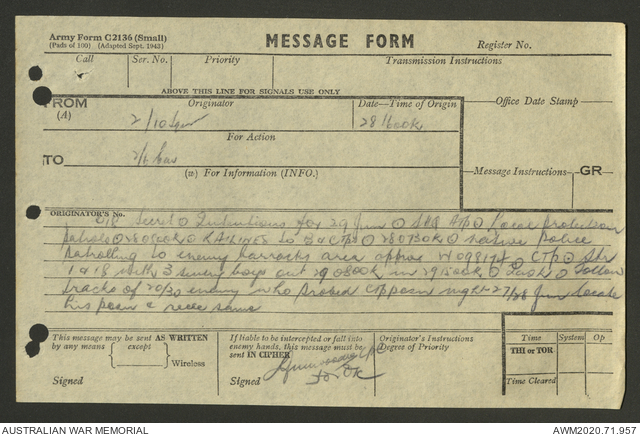 Army Form C2136 (Small)
(Pads of 100) (Adapted Sept. 1943)
MESSAGE FORM
Register No.
Call
Ser. No.
Priority
Transmission Instructions
ABOVE THIS LINE FOR SIGNALS USE ONLY
FROM
(A)
Originator
Date—Time of Origin
Office Date Stamp
2/10
28 1600K
For Action
TO
2/6
(w) For Information (INFO.)
Message Instructions
GR
ORIGINATOR'S No.
Secret O Intentions for 29 Jun O O Local protection
patrols O 280800K O to O 280730K O native police
patrolling to enemy barracks area approx W098174 O O
1 & 18 with 3 boys out 290800K in 291500K O Task O Follow
tracks of 20/30 enemy who probed posn night 27/28 Jun locate
his posn & recce same
This message may be sent AS WRITTEN
by any means except
Wireless
Signed
If liable to be intercepted or fall into
enemy hands, this message must be
sent IN CIPHER
Signed
Originator's Instructions
Degree of Priority
Time
System
Op
THI or TOR
Time Cleared
AUSTRALIAN WAR MEMORIAL
AWM2020.71.957